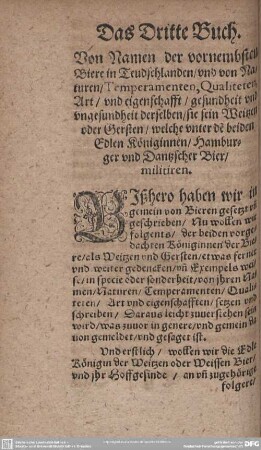 Das Dritte Buch.
Von Namen der vornembsten
Biere in Teudschlanden/vnd von Na-
turen/Temperamenten, Qualiteten,
Art/vnd eigenschafft/gesundheit vnd
vngesundheit derselben/sie sein Weitzen
oder Gersten/welche vnter dē beiden
Edlen Königinnen/Hambur-
ger vnd Dantzscher Bier/
militiren.
BIßhero haben wir in
gemein von Bieren gesetzt vñ
geschrieben/Nu wollen wir
folgents/der beiden vorge-
dachten Königinnen der Bie-
re/als Weitzen vnd Gersten/etwas ferner
vnd weiter gedencken/vñ Exempels wei-
se/in specie oder sonderheit/von jhren Na-
men/Naturen/Temperamenten/Quali-
teten/Art vnd eigenschafften/setzen vnd
schreiben/Daraus leicht zuuerstehen sein
wird/was zuuor in genere/vnd gemein da-
von gemeldet/vnd gesaget ist.
Vnd erstlich/wollen wir die Edle
Königin der Weitzen oder Weissen Bier/
vnd jhr Hoffgesinde/an vñ zugehörige
folgere/